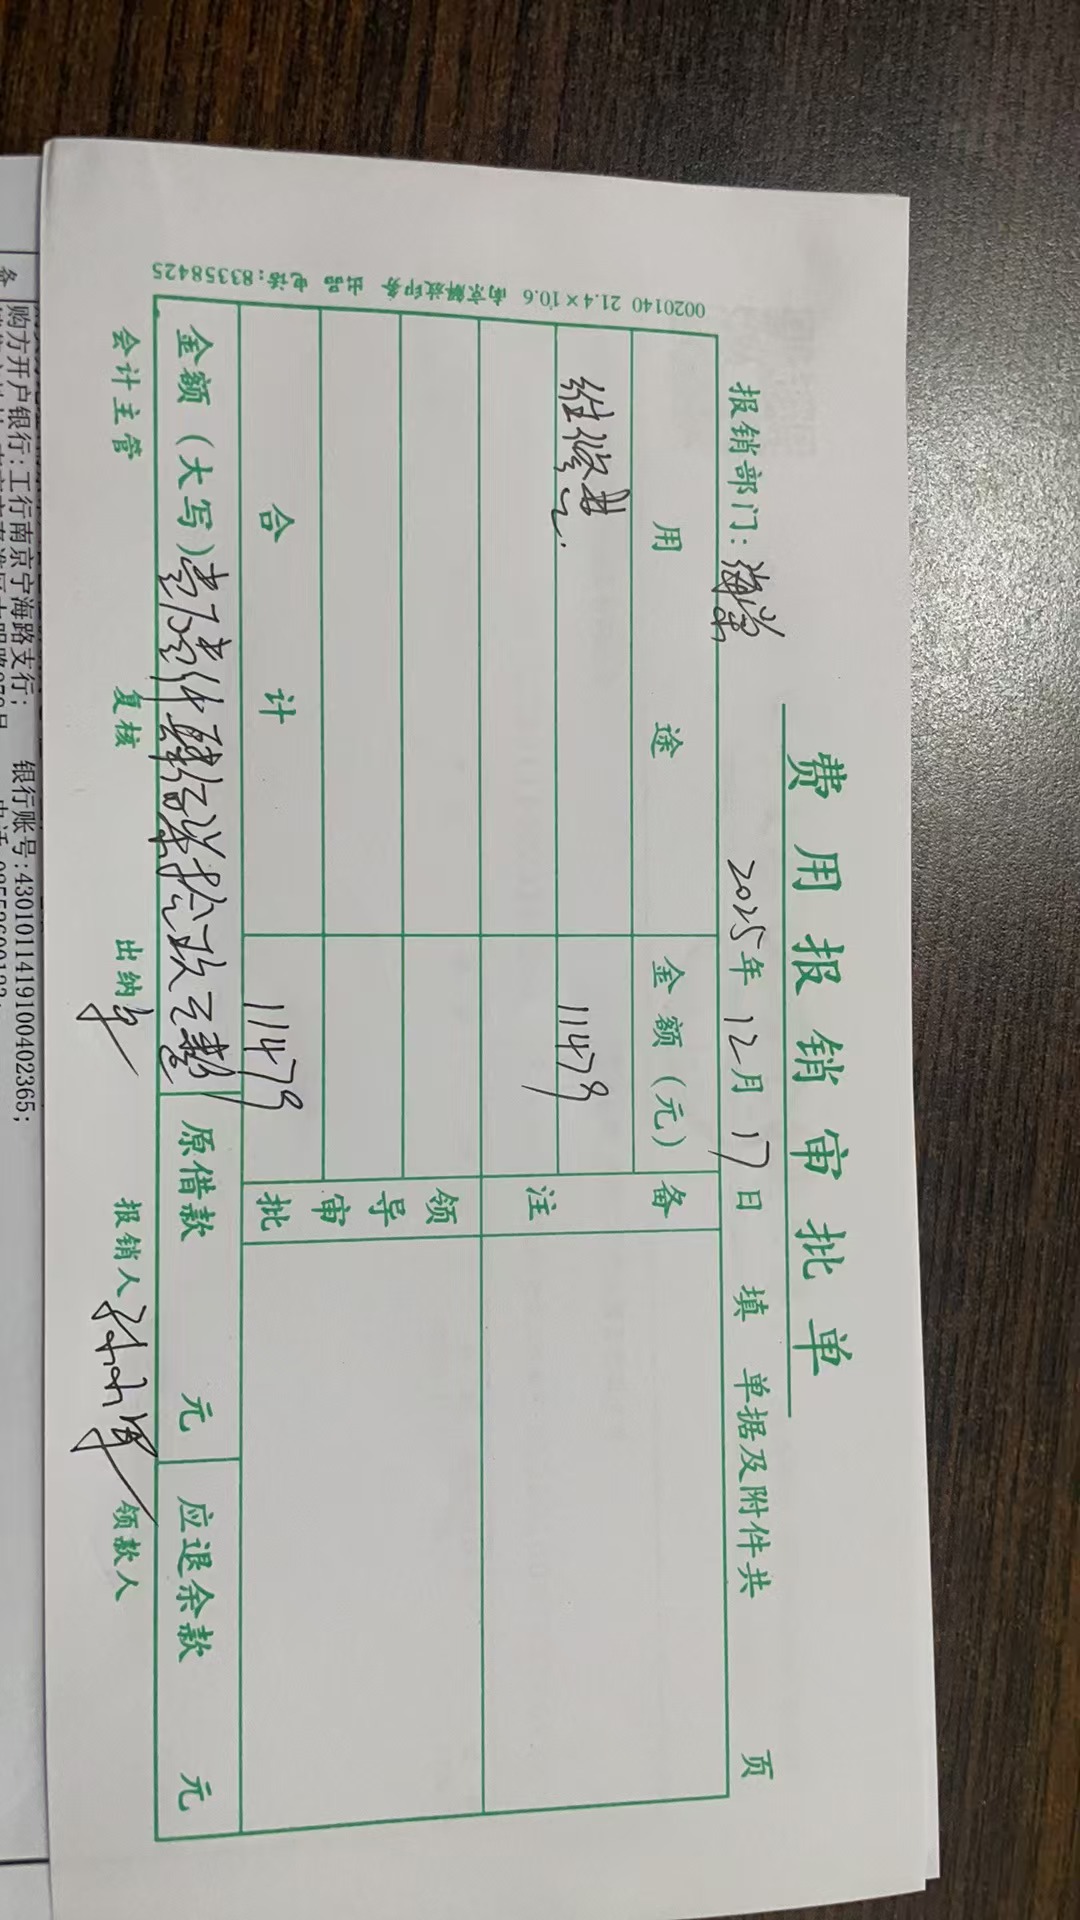 费用报销审批单
报销部门: 海棠 2025年12月17日填 单据及附件共 页
用途 金额(元) 备注
维修基 11479
领导审批
合计 11479
金额(大写)壹万壹仟肆佰柒拾玖元整 原借款 元 应退余款 元
会计主管 复核 出纳 报销人 领款人
0020140 21.4×10.6 南京解放印务 出品 电话:83358425
备
购方开户银行:工行南京宁海路支行; 银行账号:4301011419100402365;